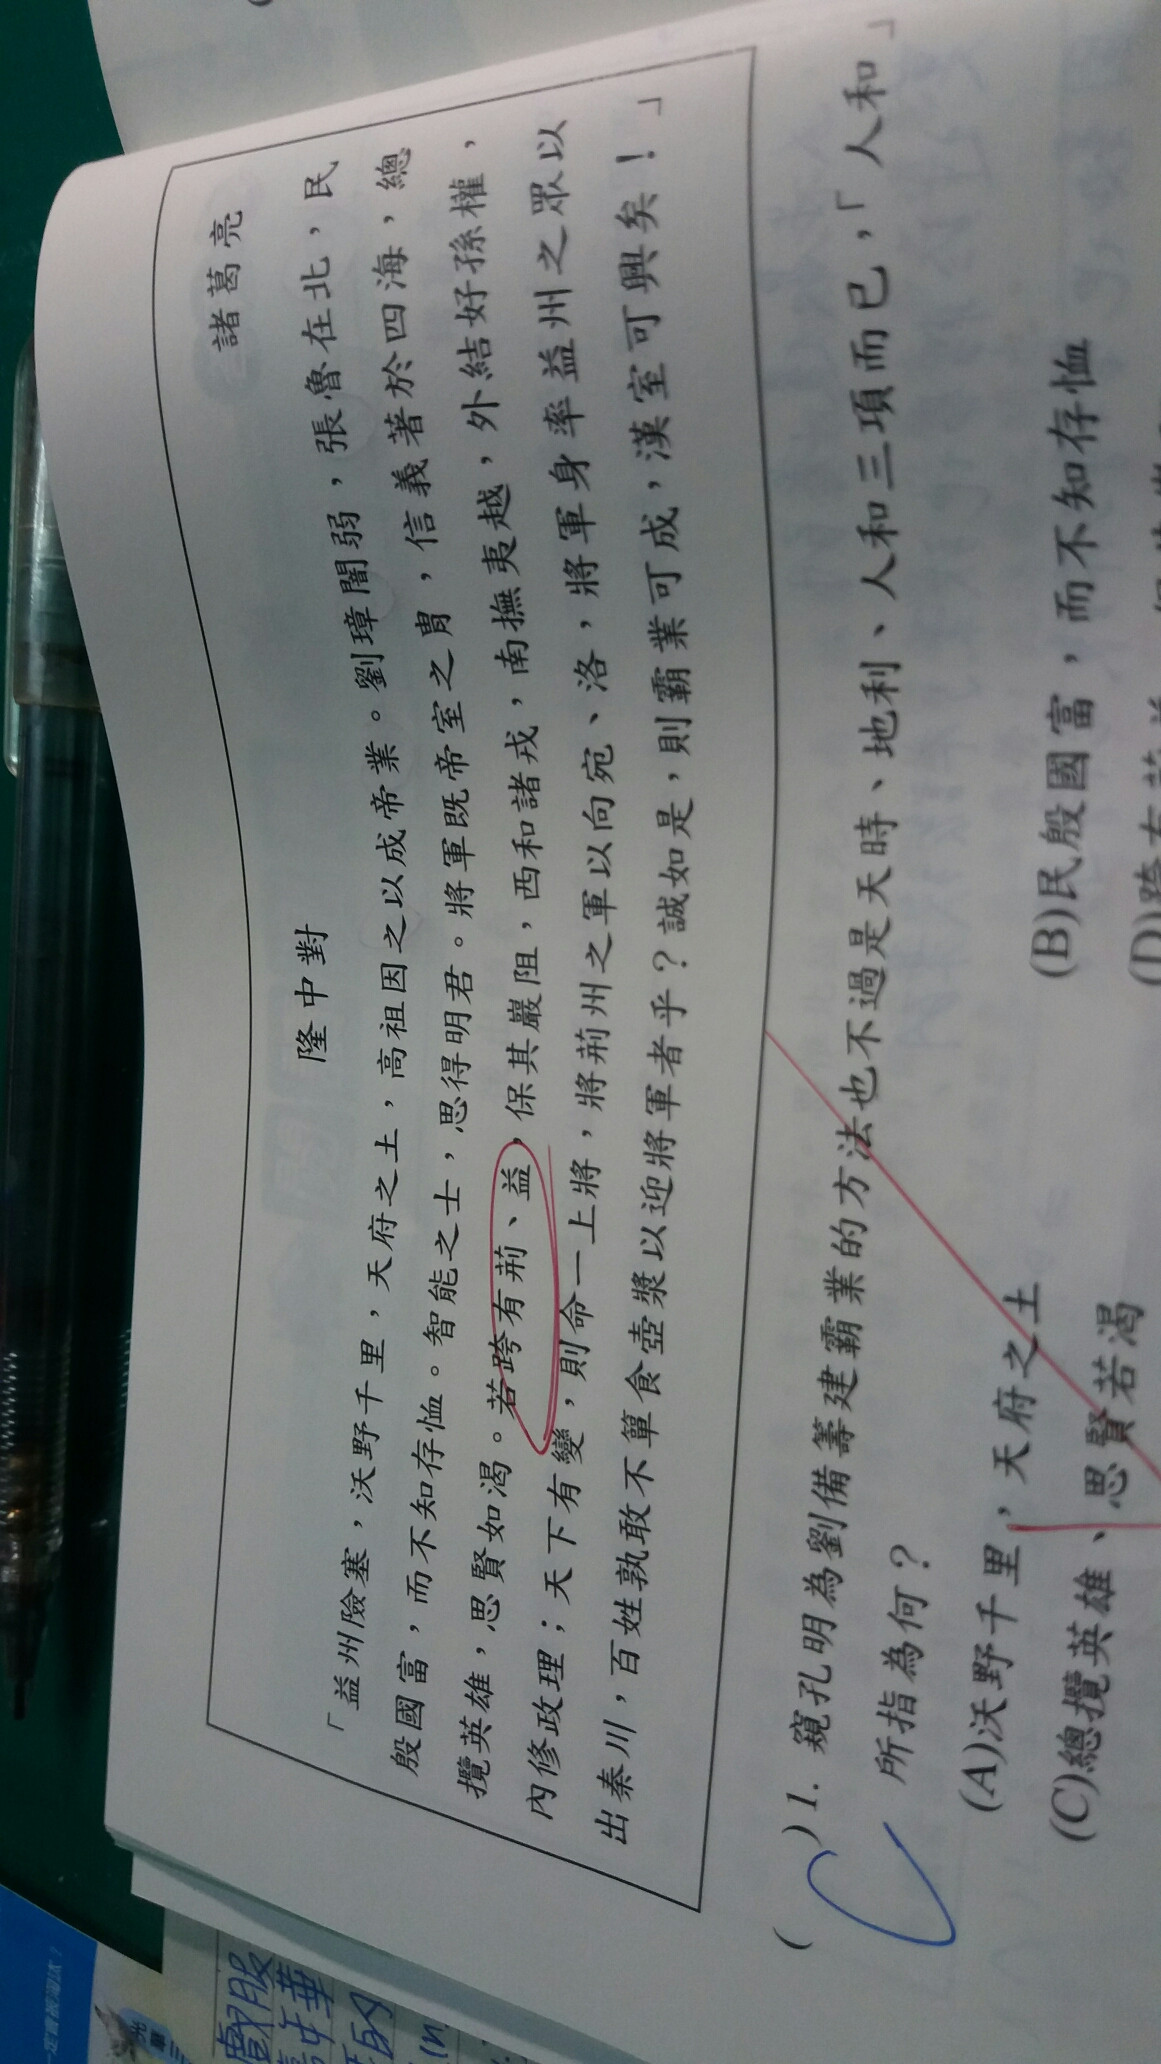 隆中對
諸葛亮
「益州險塞，沃野千里，天府之土，高祖因之以成帝業。劉璋闇弱，張魯在北，民
殷國富，而不知存恤。智能之士，思得明君。將軍既帝室之胄，信義著於四海，總
攬英雄，思賢如渴。若跨有荊、益，保其巖阻，西和諸戎，南撫夷越，外結好孫權，
內修政理；天下有變，則命一上將，將荊州之軍以向宛、洛，將軍身率益州之眾以
出秦川，百姓孰敢不簞食壺漿以迎將軍者乎？誠如是，則霸業可成，漢室可興矣！」
( C )1. 窺孔明為劉備籌建霸業的方法也不過是天時、地利、人和三項而已，「人和」
所指為何？
(A)沃野千里，天府之土
(B)民殷國富，而不知存恤
(C)總攬英雄、思賢若渴
(D)跨有荊、益